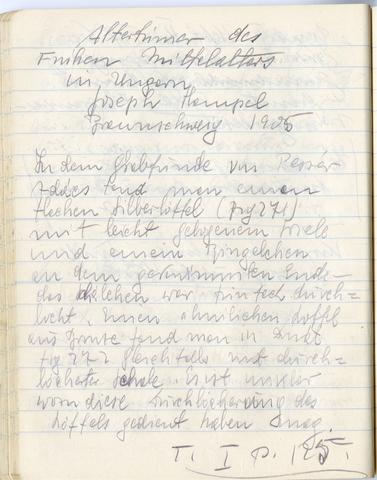 Altertümer des
Frühen Mittelalters
in Ungarn
Joseph Hampel
Braunschweig 1905
In dem Grabfunde von
fand man einen
flachen Silberlöffel (Fig 271)
mit leicht gebogenem Stiele
und einem Ringelchen
an dem Ende
des Schälchen war fünffach durch=
locht. Einen ähnlichen Löffel
aus Bronze fand man in
Fig 272 gleichfalls mit durch=
löcherter Schale. Es ist unklar
wozu diese Durchlöcherung des
Löffels gedient haben mag.
T. I p. 125.